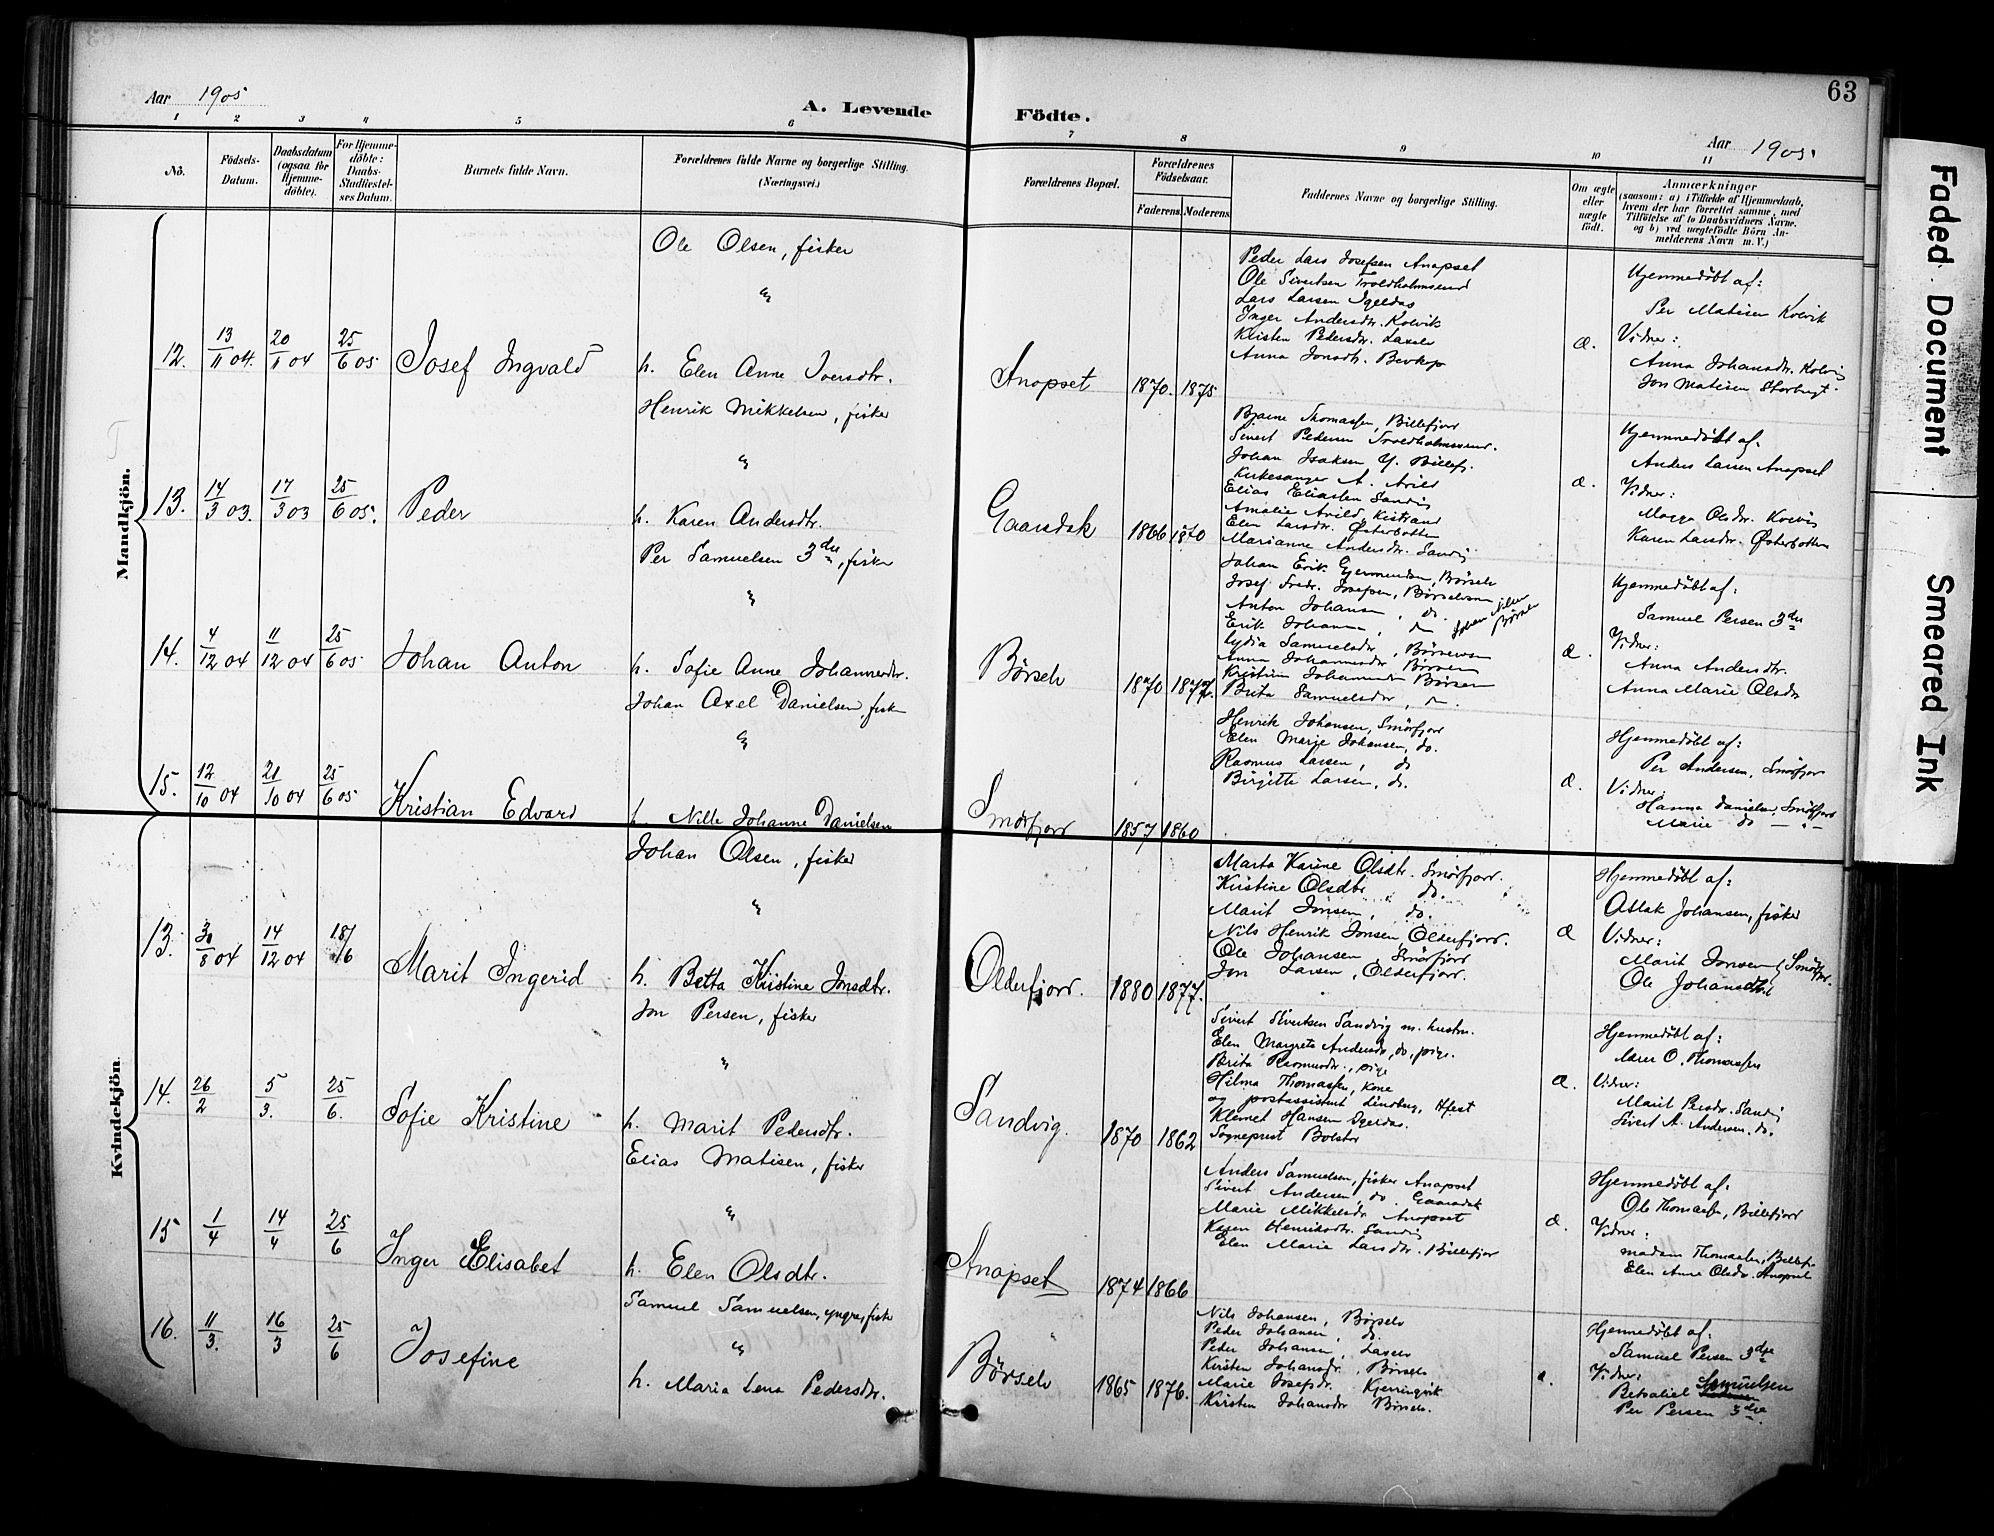 63
Aar 1905
A. Levende Födte.
Aar 1905.
1 2 3 4 5 6 7 8 9 10 11
No.
Födsels-
Datum.
Daabsdatum
(ogsaa för
Hjemme-
döbte).
For Hjemme-
döbte:
Daabs-
Stadfæstel-
ses Datum.
Barnets fulde Navn.
Forældrenes fulde Navne og borgerlige Stilling.
(Næringsvei.)
Forældrenes Bopæl.
Forældrenes
Födselsaar.
Faderens. Moderens.
Faddernes Navne og borgerlige Stilling.
Om ægte
eller
uægte
födt.
Anmærkninger
(saasom: a) i Tilfælde af Hjemmedaab,
hvem der har forrettet samme, med
Tilföielse af to Daabsvidners Navne.
og b) ved uægtefödte Börn An-
melderens Navn m. V.)
Mandkjön.
12. 13/11 04. 20/11 04 25/6 05 Josef Ingvald
Ole Olsen, fisker
h. Elen Anne Iversdtr.
Anopset 1870. 1875
Peder Lars Josefsen Anopset
Ole Sivertsen Troldholmsund
Lars Larsen Igeldas
Inger Andersdtr. Kolvik
Kristen Pedersdtr. Laxelv
Anna Jonsdtr. Bevkop
æ.
Hjemmedøbt af:
Per Matisen Kolvik
Vidner:
Anna Johansdtr. Kolvig
Jon Matisen Storbugt.
13. 14/3 03. 17/3 03 25/6 05. Peder
Henrik Mikkelsen, fisker
h. Karen Andersdtr.
Gaarsdak 1866 1870
Bjarne Thomassen, Billefjord
Sivert Pedersen Troldholmsund.
Johan Isaksen Y. Billefj.
Kirkesanger A. Arild
Elias Eliassen Sandvig
Amalie Arild, Kistrand
Elen Larsdtr. Østerbotten
Marianne Andersdtr. Sandvig
æ.
Hjemmedøbt af:
Anders Larsen Anopset
Vidner:
Magga Olsdtr. Kolvig
Karen Larsdtr. Østerbotten
14. 4/12 04 11/12 04 25/6 05 Johan Anton
Per Samuelsen 3die, fisker
h. Sofie Anne Johannesdtr.
Børselv 1870 1877.
Johan Erik Gjermundsen, Børselv
Josef Fredr. Josefsen, Børselvsen
Anton Johansen, do.
Erik Johansen, do Johan Nilsen Børselv
Lydia Samuelsdtr,
Anna Johannesdtr Børselv
Kristine Johannesdtr Børselv
Brita Samuelsdtr, do.
æ.
Hjemmedøbt af:
Samuel Persen 3die
Vidner:
Anna Andersdtr.
Anna Marie Olsdtr
15. 12/10 04 21/10 04 25/6 05 Kristian Edvard
Johan Axel Danielsen fisk
h. Nille Johanne Danielsen
Smörfjord 1857 1860
Henrik Johansen, Smörfjord
Elen Marje Johansen, do.
Rasmus Larsen, do
Birgitte Larsen, do.
æ.
Hjemmedøbt af:
Per Andersen, Smörfjord
Vidner:
Hanna Danielsen, Smörfjord
Marie do — " —
Kvindekjön.
13. 30/8 04 14/12 04 18/6 Marit Ingerid
Johan Olsen, fisker
h. Betta Kristine Jonsdtr.
Olderfjord. 1880 1877.
Marta Karine Olsdtr. Smörfjord.
Kristine Olsdtr do.
Marit Jonsen, do.
Nils Henrik Jonsen, Olderfjord.
Ole Johansen Smörfjord
Jon Larsen, Olderfjord.
æ
Hjemmedøbt af:
Aslak Johansen, fisker
Vidner:
Marit Jonsen, Smörfjor.
Ole Johansen
14. 26/2 5/3. 25/6. Sofie Kristine
Jon Persen, fisker
h. Marit Pedersdtr.
Sandvig. 1870 1862
Sivert Sivertsen Sandvig m. hustru.
Elen Margrete Andersdtr, do, pige.
Brita Rasmusdtr., pige
Hilma Thomassen, kone
og postassistent Lindberg, Hfest
Klemet Hansen Igeldas.
Sogneprest Bolstr
æ.
Hjemmedøbt af:
Larer O. Thomassen
Vidner:
Marit Persdtr. Sandvig
Sivert A. Andersen, do.
15 1/4 14/4 25/6 Inger Elisabet
Elias Matisen, fisker
h. Elen Olsdtr.
Anopset 1874 1866
Anders Samuelsen, fisker Anopset
Sivert Andersen, do. Gaarsdak
Marie Mikkelsdtr Anopset
Karen Henriksdtr. Sandvig
Elen Marie Larsdtr. Billefjor
æ.
Hjemmedøbt af:
Ole Thomassen, Billefjord
Vidner:
madam Thomassen, Billefjo
Elen Anne Olsdtr. Anopset
16. 11/3. 16/3 25/6 Josefine
Samuel Samuelsen, yngre, fisk
h. Maria Lena Pedersdtr.
Børselv 1865 1876.
Nils Johansen, Børselv
Peder Johansen, do.
Peder Johansen, Laxelv
Kirsten Johansdtr, Børselv
Marie Josefsdtr. Kjerringvik
Kristen Johansdtr Børselv.
æ.
Hjemmedøbt af:
Samuel Persen 3die
Vidner:
Betsaliel Samuelsen
Per Persen 3die.
Faded Document
Smeared Ink